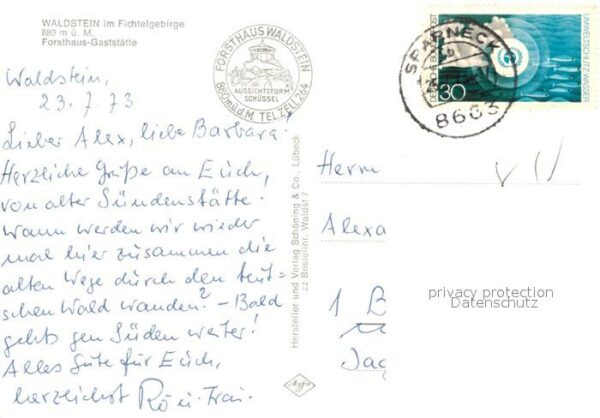 WALDSTEIN im Fichtelgebirge
880 m ü. M.
Forsthaus-Gaststätte
FORSTHAUS WALDSTEIN
AUSSICHTSTURM
SCHÜSSEL
880 m ü.d.M. TEL. ZELL 264
SPARNECK
8663
DEUTSCHE BUNDESPOST
30
UMWELTSCHUTZ: WASSER
Waldstein,
23.7.73
Lieber Alex, liebe Barbara!
Herzliche Grüße an Euch,
von alter Sündenstätte.
Wann werden wir wieder
mal hier zusammen die
alten Wege durch den deut=
schen Wald wandern? - Bald
gehts gen Süden weiter!
Alles Gute für Euch,
herzlichst
Hersteller und Verlag Schöning & Co., Lübeck
zz Bestellnr. Waldst 7
Agfa
Herrn
Alexa
1 B
Jag
privacy protection
Datenschutz